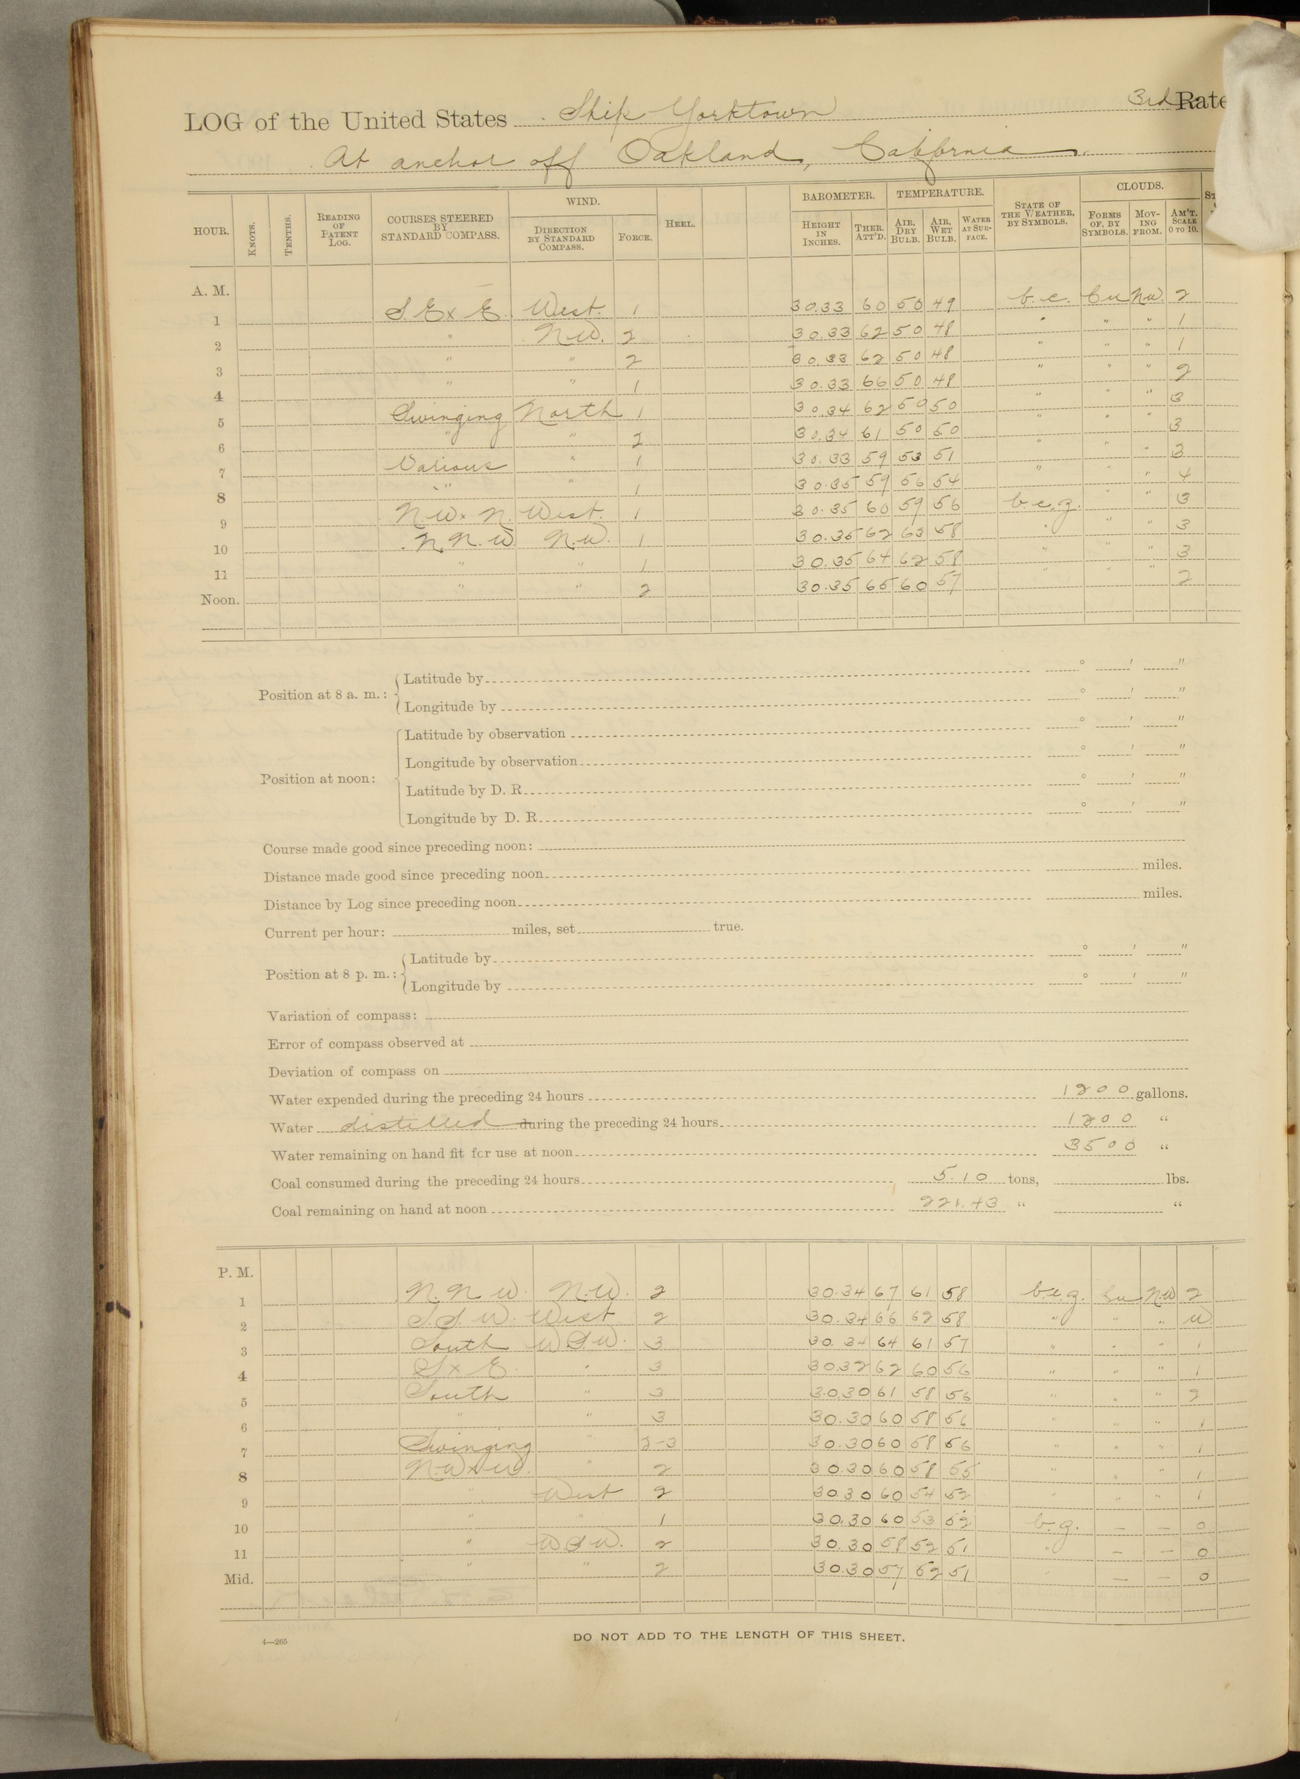 LOG of the United States Ship Yorktown 3rd Rate
At anchor off Oakland, California.
HOUR. KNOTS. TENTHS. READING OF PATENT LOG. COURSES STEERED BY STANDARD COMPASS. WIND. DIRECTION BY STANDARD COMPASS. FORCE. HEEL. BAROMETER. HEIGHT IN INCHES. THER. ATT'D. TEMPERATURE. AIR, DRY BULB. AIR, WET BULB. WATER AT SURFACE. STATE OF THE WEATHER, BY SYMBOLS. CLOUDS. FORMS OF, BY SYMBOLS. MOVING FROM. AM'T. SCALE 0 TO 10.
A. M.
1 S E x E. West. 1 30.33 60 50 49 b.c. Cu NW. 2
2 " NW. 2 30.33 62 50 48 " " " 1
3 " " 2 30.33 62 50 48 " " " 1
4 " " 1 30.33 66 50 48 " " " 2
5 Swinging North 1 30.34 62 50 50 " " " 3
6 " " 2 30.34 61 50 50 " " " 3
7 Various " 1 30.33 59 53 51 " " " 3
8 " " 1 30.35 59 56 54 " " " 4
9 N.W. x N. West. 1 30.35 60 59 56 b.c.g. " " 3
10 N.N.W N.W. 1 30.35 62 63 58 " " " 3
11 " " 1 30.35 64 62 58 " " " 3
Noon. " " 2 30.35 65 60 57 " " " 2
Position at 8 a. m.: Latitude by ° ′ ″
Longitude by ° ′ ″
Position at noon: Latitude by observation ° ′ ″
Longitude by observation ° ′ ″
Latitude by D. R. ° ′ ″
Longitude by D. R. ° ′ ″
Course made good since preceding noon:
Distance made good since preceding noon miles.
Distance by Log since preceding noon miles.
Current per hour: miles, set true.
Position at 8 p. m.: Latitude by ° ′ ″
Longitude by ° ′ ″
Variation of compass:
Error of compass observed at
Deviation of compass on
Water expended during the preceding 24 hours 1200 gallons.
Water distilled during the preceding 24 hours 1200 "
Water remaining on hand fit for use at noon 3500 "
Coal consumed during the preceding 24 hours 5.10 tons, lbs.
Coal remaining on hand at noon 221.43 " "
P. M.
1 N.N.W. N.W. 2 30.34 67 61 58 b.c.g. Cu NW 2
2 S.S.W. West 2 30.34 66 62 58 " " "
3 South WSW. 3 30.34 64 61 57 " " " 1
4 S x E. " 3 30.32 62 60 56 " " " 1
5 South " 3 30.30 61 58 56 " " " 2
6 " " 3 30.30 60 58 56 " " " 1
7 Swinging " 2-3 30.30 60 58 56 " " " 1
8 NW x W. " 2 30.30 60 58 55 " " " 1
9 " West 2 30.30 60 54 52 " " " 1
10 " " 1 30.30 60 53 52 b.g. — — 0
11 " WSW. 2 30.30 58 52 51 " — — 0
Mid. " " 2 30.30 57 52 51 " — — 0
4—265
DO NOT ADD TO THE LENGTH OF THIS SHEET.